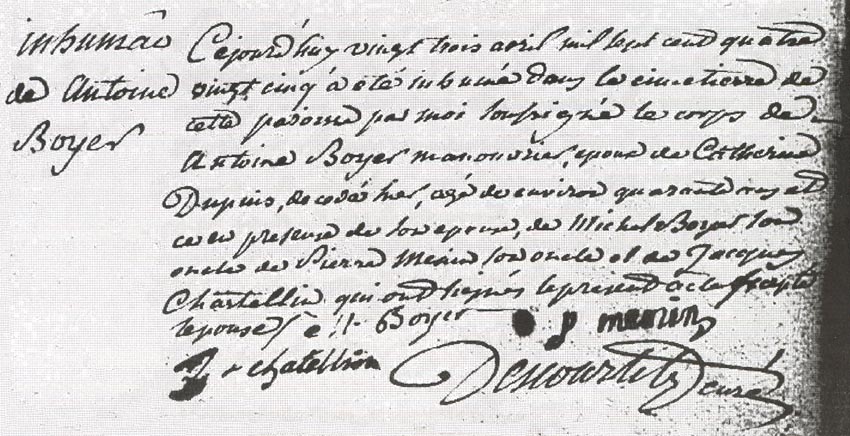 inhumão
de Antoine
Boyer
Cejourd'huy vingt trois avril mil sept cent quatre
vingt cinq à été inhumé dans le cimetierre de
cette paroisse par moi soussigné le corps de
Antoine Boyer manouvrier, epoux de Catherine
Dupuis, decedé hier, agé de environ quarante ans et
ce en presence de son epouse, de Michel Boyer son
oncle de Pierre Menin son oncle et de Jacques
Chatellin qui ont signés le present acte excepté
lepouse Boyer p menin
chatellin curé